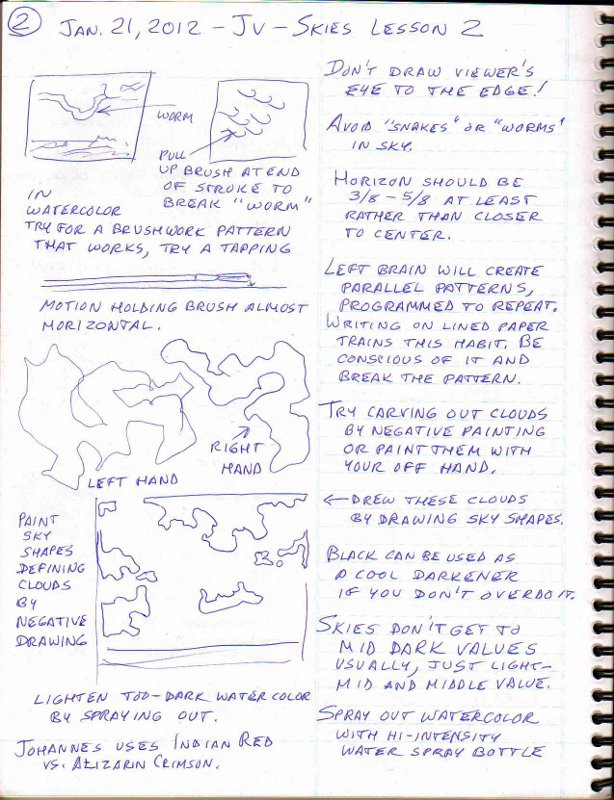 2 JAN. 21, 2012 - JV - SKIES LESSON 2
WORM
PULL
UP BRUSH AT END
OF STROKE TO
BREAK "WORM"
IN
WATERCOLOR
TRY FOR A BRUSHWORK PATTERN
THAT WORKS, TRY A TAPPING
MOTION HOLDING BRUSH ALMOST
HORIZONTAL.
RIGHT
HAND
LEFT HAND
PAINT
SKY
SHAPES
DEFINING
CLOUDS
BY
NEGATIVE
DRAWING
LIGHTEN TOO-DARK WATERCOLOR
BY SPRAYING OUT.
JOHANNES USES INDIAN RED
VS. ALIZARIN CRIMSON.
DON'T DRAW VIEWER'S
EYE TO THE EDGE!
AVOID "SNAKES" OR "WORMS"
IN SKY.
HORIZON SHOULD BE
3/8 - 5/8 AT LEAST
RATHER THAN CLOSER
TO CENTER.
LEFT BRAIN WILL CREATE
PARALLEL PATTERNS,
PROGRAMMED TO REPEAT.
WRITING ON LINED PAPER
TRAINS THIS HABIT. BE
CONSCIOUS OF IT AND
BREAK THE PATTERN.
TRY CARVING OUT CLOUDS
BY NEGATIVE PAINTING
OR PAINT THEM WITH
YOUR OFF HAND.
← DREW THESE CLOUDS
BY DRAWING SKY SHAPES.
BLACK CAN BE USED AS
A COOL DARKENER
IF YOU DON'T OVERDO IT.
SKIES DON'T GET TO
MID DARK VALUES
USUALLY, JUST LIGHT-
MID AND MIDDLE VALUE.
SPRAY OUT WATERCOLOR
WITH HI-INTENSITY
WATER SPRAY BOTTLE